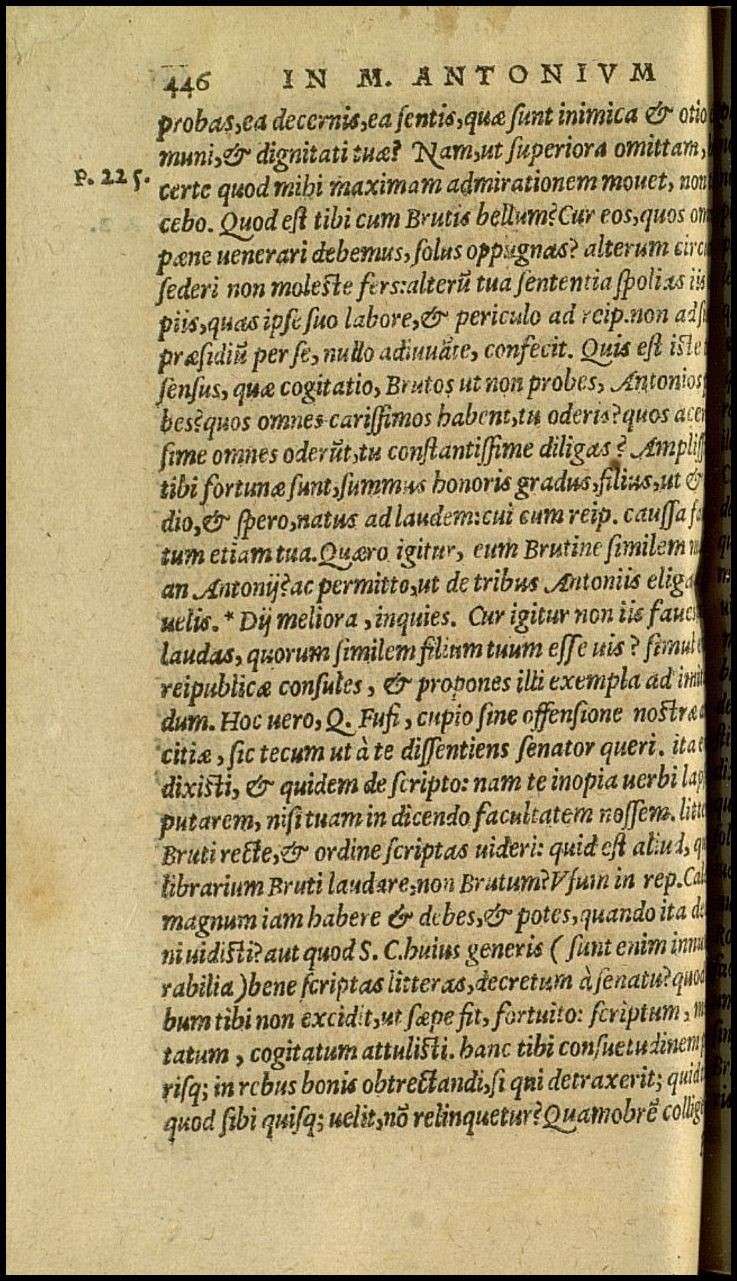 446 IN M. ANTONIVM
probas, ea decernis, ea sentis, quæ sunt inimica & otio
muni, & dignitati tuæ? Nam, ut superiora omittam,
P. 225.
certe quod mihi maximam admirationem mouet, non
cebo. Quod est tibi cum Brutis bellum? Cur eos, quos om
pæne uenerari debemus, solus oppugnas? alterum circu
sederi non moleste fers: alterũ tua sententia spolias iis
piis, quas ipse suo labore, & periculo ad reip. non ad su
præsidiũ per se, nullo adiuuãte, confecit. Quis est iste
sensus, quæ cogitatio, Brutos ut non probes, Antonios
bes? quos omnes carissimos habent, tu oderis? quos acer
sime omnes oderũt, tu constantissime diligas? Ampliss
tibi fortunæ sunt, summus honoris gradus, filius, ut &
dio, & spero, natus ad laudem: cui cum reip. caussa fa
tum etiam tua. Quæro igitur, eum Brutine similem m
an Antonij? ac permitto, ut de tribus Antoniis eliga
uelis. * Dij meliora, inquies. Cur igitur non iis faues
laudas, quorum similem filium tuum esse uis? simul e
reipublicæ consules, & propones illi exempla ad imita
dum. Hoc uero, Q. Fufi, cupio sine offensione nostræ a
citiæ, sic tecum ut à te dissentiens senator queri. ita e
dixisti, & quidem de scripto: nam te inopia uerbi lap
putarem, nisi tuam in dicendo facultatem nossem. litte
Bruti recte, & ordine scriptas uideri: quid est aliud, qu
librarium Bruti laudare, non Brutum? Vsum in rep. Cal
magnum iam habere & debes, & potes, quando ita de
ni uidisti? aut quod S. C. huius generis (sunt enim innu
rabilia) bene scriptas litteras, decretum à senatu? quod
bum tibi non excidit, ut sæpe fit, fortuito: scriptum, m
tatum, cogitatum attulisti. hanc tibi consuetudinem p
risq; in rebus bonis obtrectandi, si qui detraxerit; quid
quod sibi quisq; uelit, nõ relinquetur? Quamobrẽ collig